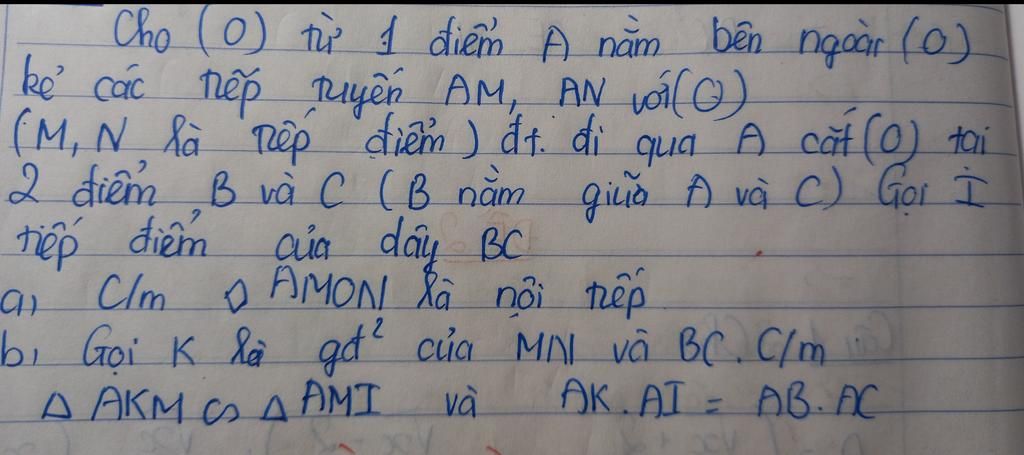 Cho (O) từ 1 điểm A nằm bên ngoài (O)
kẻ các tiếp tuyến AM, AN với (O)
(M, N là tiếp điểm) đt. đi qua A cắt (O) tại
2 điểm B và C (B nằm giữa A và C) Gọi I
tiếp điểm của dây BC
a, C/m ◊ AMON là nội tiếp
b, Gọi K là gđ² của MN và BC. C/m
Δ AKM ∽ Δ AMI và AK.AI = AB.AC